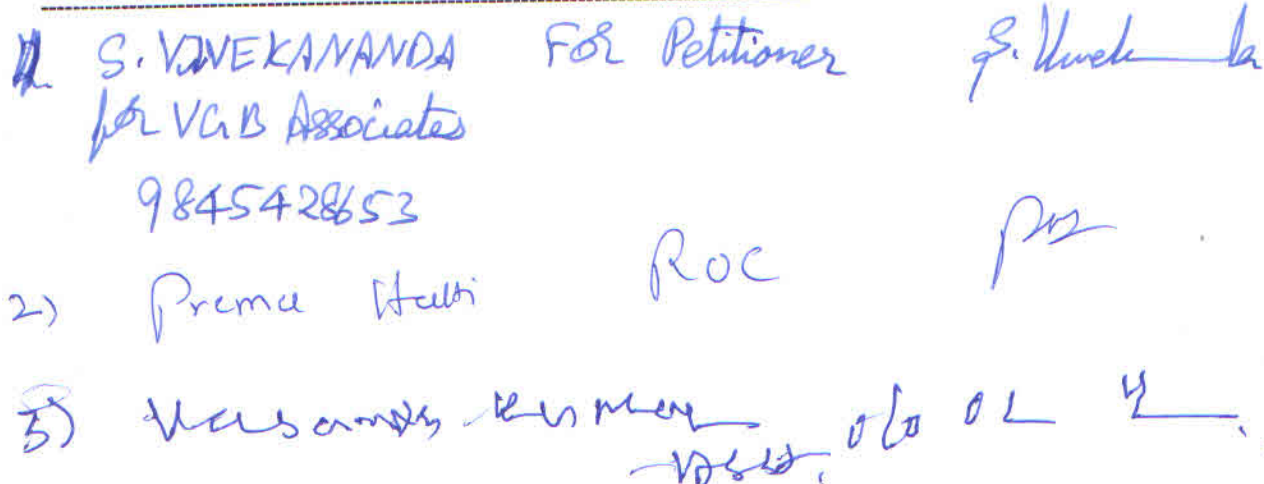 1. S. VIVEKANANDA For Petitioner
for VGB Associates
9845428653
2) Prema Hatti ROC
3) Kumar o/o OL